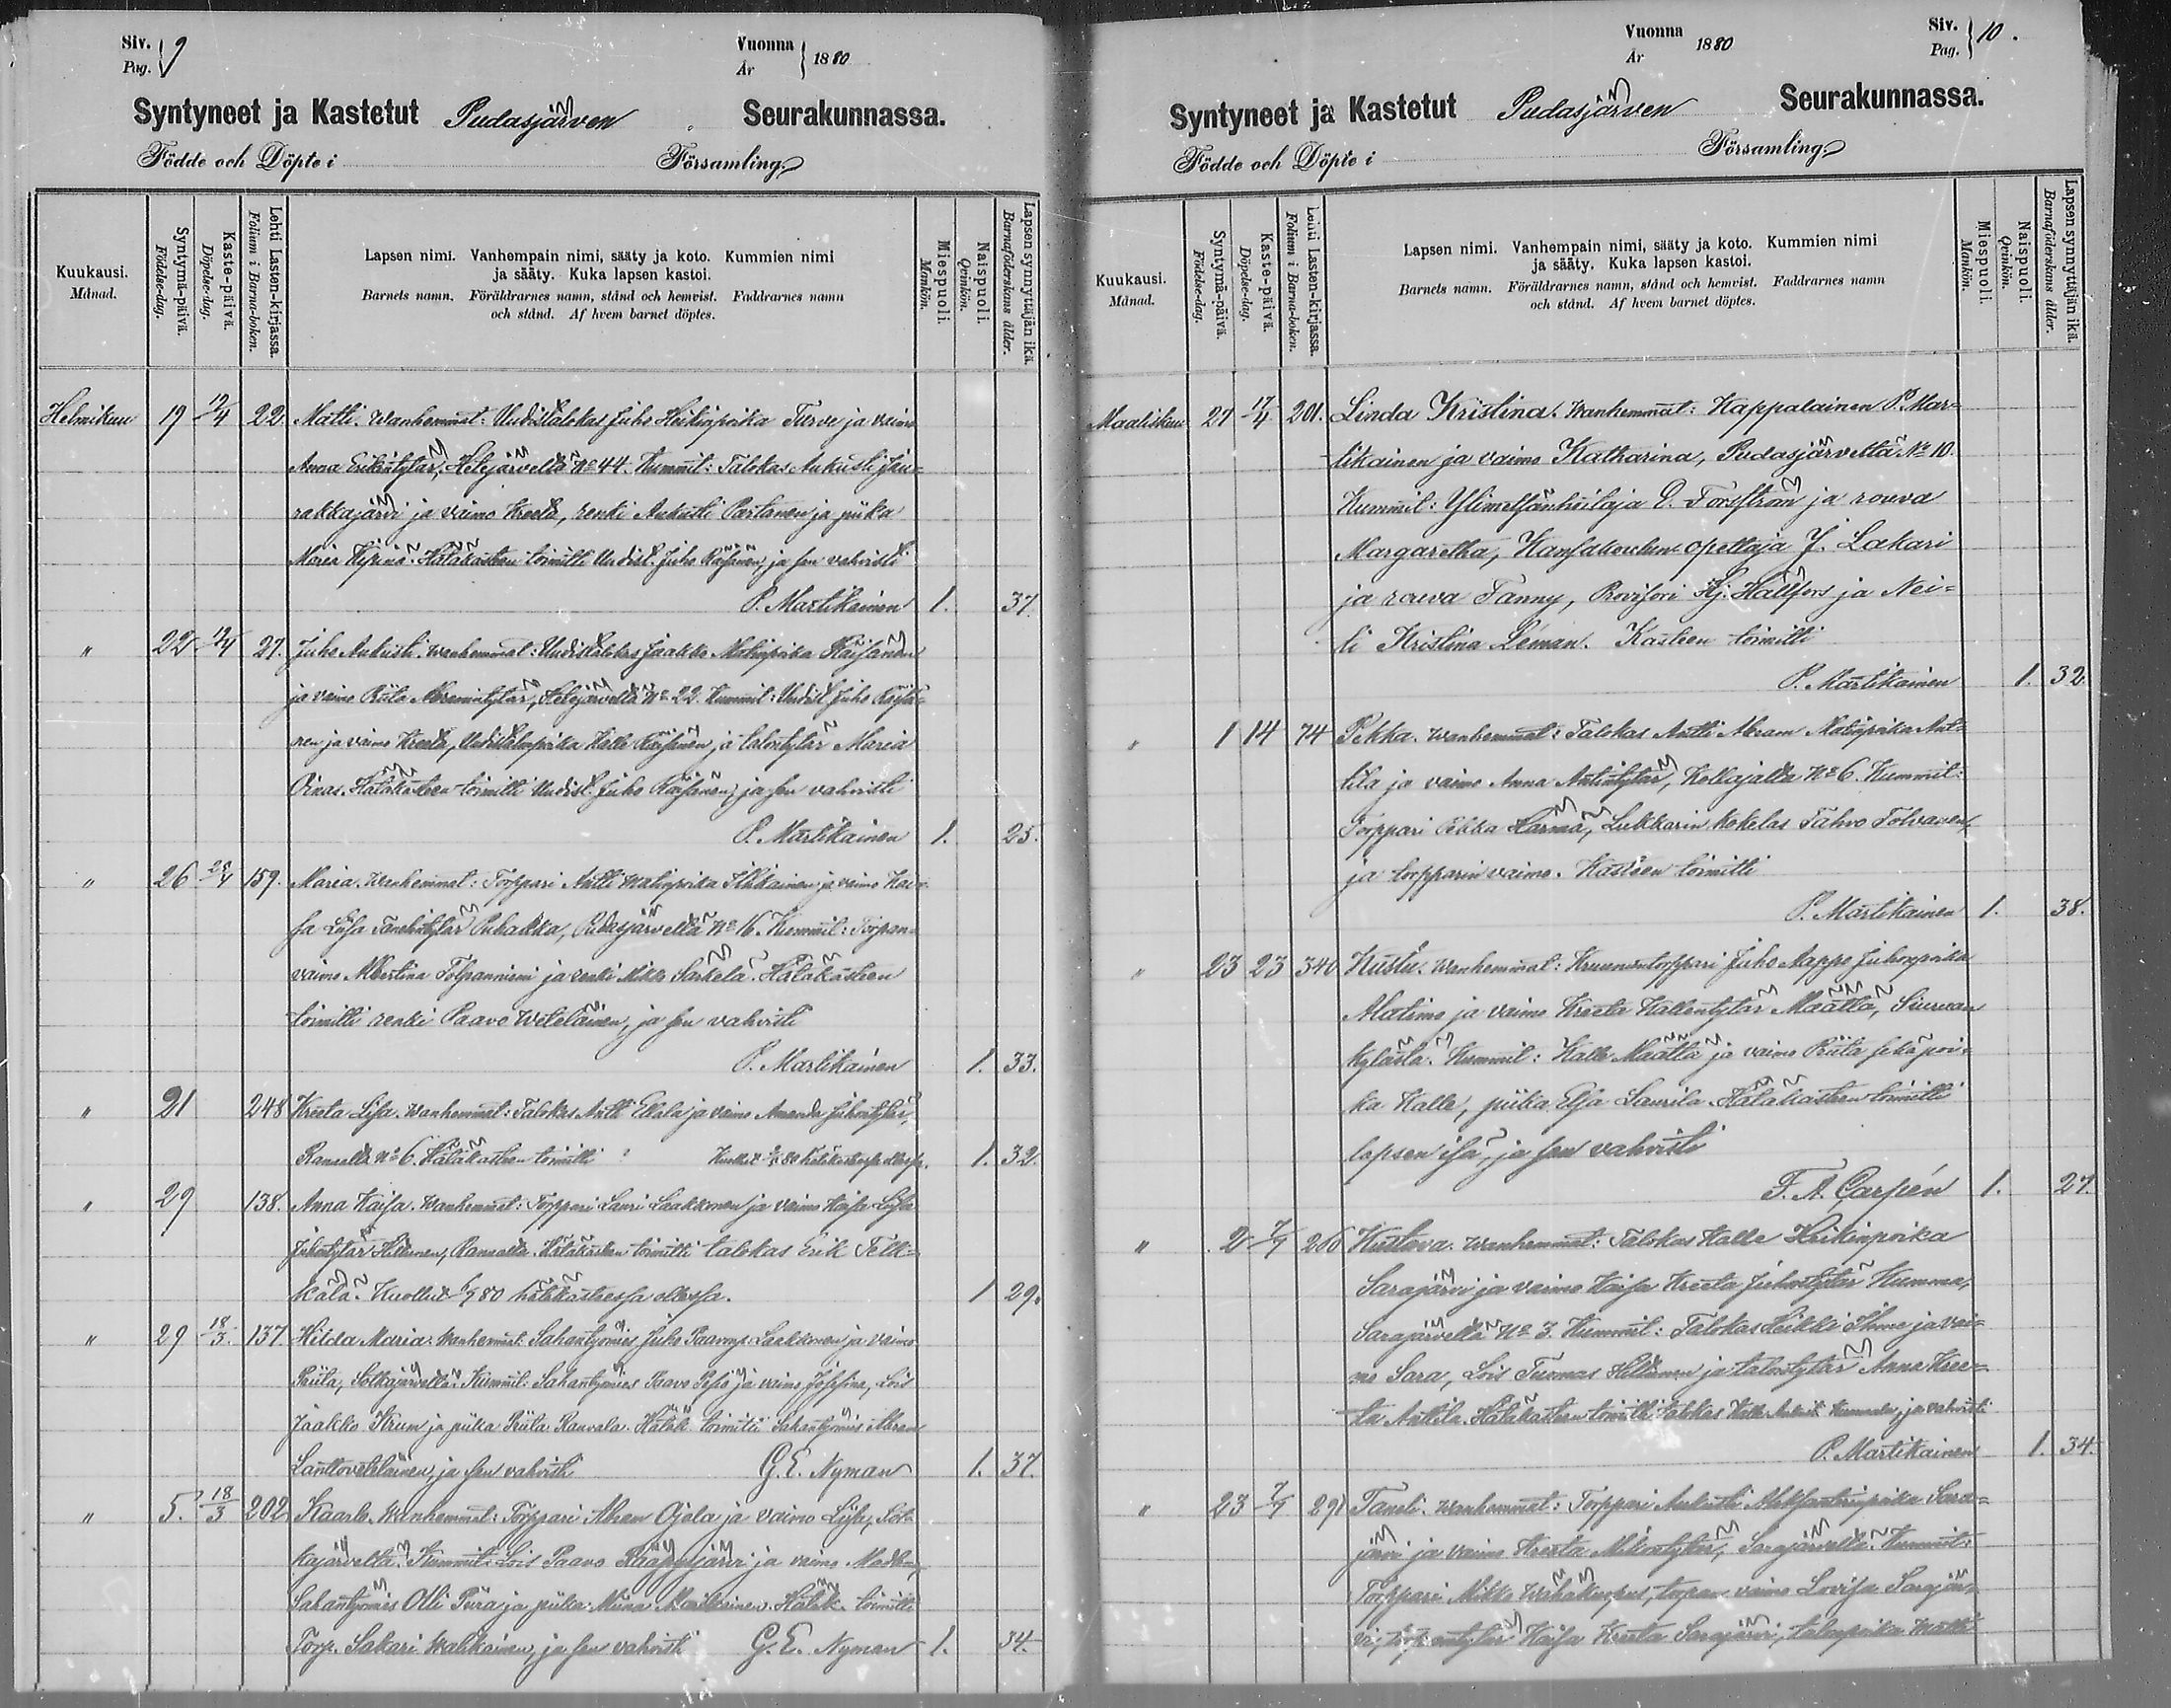 Siv. 9
Pag.
Vuonna 1880
År
Syntyneet ja Kastetut Pudasjärven Seurakunnassa.
Födde och Döpte i Församling
Kuukausi.
Månad.
Syntymä-päivä.
Födelse-dag.
Kaste-päivä.
Döpelse-dag.
Lehti Lasten-kirjassa.
Folium i Barna-boken.
Lapsen nimi. Vanhempain nimi, sääty ja koto. Kummien nimi
ja sääty. Kuka lapsen kastoi.
Barnets namn. Föräldrarnes namn, stånd och hemvist. Faddrarnes namn
och stånd. Af hvem barnet döptes.
Miespuoli.
Mankön.
Naispuoli.
Qvinkön.
Lapsen synnyttäjän ikä.
Barnaföderskans ålder.
Helmikuu 19 12/4 22. Matti. Wanhemmat: Uudistalokas Juho Heikinpoika Turve ja vaimo
Anna Erikintytär, Hetejärveltä No 44. Kummit: Talokas Aukusti Jau-
rakkajärvi ja vaimo Kreeta, renki Aukusti Partanen ja piika
Maria. Hätäkasteen toimitti Uudist. Juho Räisänen ja sen vahvisti
P. Martikainen 1. 37.
" 22 12/4 27. Juho Aukusti. Wanhemmat: Uudistalokas Jaakko Matinpoika Räisänen
ja vaimo Riita, Hetejärveltä No 22. Kummit: Uudist. Juho Räisä-
nen ja vaimo Kreeta, Uudistalonpoika Kalle Räisänen ja talontytär Maria
Oinas. Hätäkasteen toimitti Uudist. Juho Räisänen, ja sen vahvisti
P. Martikainen 1. 25.
" 26 159. Maria. Wanhemmat: Torppari Antti Matinpoika Ilkkainen ja vaimo Kai-
sa Liisa Puhakka, Pudasjärveltä No 16. Kummit: Torpan
vaimo Albertina Tolpanniemi ja renki Mikko Särkelä. Hätäkasteen
toimitti renki Paavo Weteläinen, ja sen vahvisti
P. Martikainen 1. 33.
" 21 248 Kreeta Liisa. Wanhemmat: Talokas Antti Ellala ja vaimo Amanda Juhontytär,
Ranualta No 6. Hätäkasteen toimitti 1. 32.
" 29 138. Anna Kaisa. Wanhemmat: Torppari Lauri Laakkonen ja vaimo Kaisa Liisa
Juhontytär Hiltunen, Ranualta. Hätäkasteen toimitti talokas Erik Telk-
kälä. Kuollut 80 hätäkasteessa ollessa. 1 29.
" 29 18/3. 137. Hilda Maria. Wanhemmat: Sahantyömies Juho Paavonp. Laakkonen ja vaimo
Riita, Sotkajärveltä. Kummit: Sahantyömies Paavo ja vaimo Josefina, Lois
Jaakko Krun ja piika Riita Ranvala. Hätäk. toimitti Sahantyömies Abram
Lanttoveteläinen, ja sen vahvisti G. E. Nyman 1. 37.
" 5. 18/3 202 Kaarlo. Wanhemmat: Torppari Abram Ojala ja vaimo Liisa, Sot-
kajärveltä. Kummit: Lois Paavo Rääpysjärvi ja vaimo Madle-,
Sahantyömies Olli Piira ja piika Miina. Hätäk. toimitti
Torp. Sakari Matikainen, ja sen vahvisti G. E. Nyman 1. 34.
Vuonna 1880
År
Siv. 10.
Pag.
Syntyneet ja Kastetut Pudasjärven Seurakunnassa.
Födde och Döpte i Församling
Kuukausi.
Månad.
Syntymä-päivä.
Födelse-dag.
Kaste-päivä.
Döpelse-dag.
Lehti Lasten-kirjassa.
Folium i Barna-boken.
Lapsen nimi. Vanhempain nimi, sääty ja koto. Kummien nimi
ja sääty. Kuka lapsen kastoi.
Barnets namn. Föräldrarnes namn, stånd och hemvist. Faddrarnes namn
och stånd. Af hvem barnet döptes.
Miespuoli.
Mankön.
Naispuoli.
Qvinkön.
Lapsen synnyttäjän ikä.
Barnaföderskans ålder.
Maaliskuu 27 17/4 201. Linda Kristina. Wanhemmat: Kappalainen P. Mar-
tikainen ja vaimo Katharina, Pudasjärveltä No 10.
Kummit: Ylimetsänhoitaja E. Forsström ja rouva
Margaretha, Kansakoulun opettaja J. Lakari
ja rouva Fanny, Provisori Hj. Hällfors ja Nei-
ti Kristina Leman. Kasteen toimitti
P. Martikainen 1. 32.
" 1 14 74 Pekka. Wanhemmat: Talokas Antti Abram Matinpoika Ant-
tila ja vaimo Anna Antintytär, Kollajalta No 6. Kummit:
Torppari Pekka Harma, Lukkarin kokelas Tahvo Tolvanen,
ja torpparin vaimo. Kasteen toimitti
P. Martikainen 1. 38.
" 23 23 340 Kustu. Wanhemmat: Kruununtorppari Juho Aappo Juhonpoika
Alatimo ja vaimo Kreeta Kallentytär Määttä, Siuruan
kylästä. Kummit: Kalle Määttä ja vaimo Riita sekä poi-
ka Kalle, piika Elsa Laurila. Hätäkasteen toimitti
lapsen isä, ja sen vahvisti
F. A. Carpén 1. 27.
" 2 Kustava. Wanhemmat: Talokas Kalle Heikinpoika
Sarajärvi ja vaimo Kaisa Kreeta Juhontytär Kumma,
Sarajärveltä No 3. Kummit: Talokas Heikki Ihme ja vai-
mo Sara, Lois Tuomas Hiltunen ja talontytär Anna Kree-
ta Anttila. Hätäkasteen toimitti talokas Kalle ja vahvisti
P. Martikainen 1. 34.
" 23 291 Taneli. Wanhemmat: Torppari Aukusti Aleksanterinpoika Sara-
järvi ja vaimo Kreeta Mikontytär, Sarajärveltä. Kummit:
Torppari Mikko, torpan vaimo Lovisa Sarajär-
vi, Kaisa Kreeta Sarajärvi, talonpoika Matti